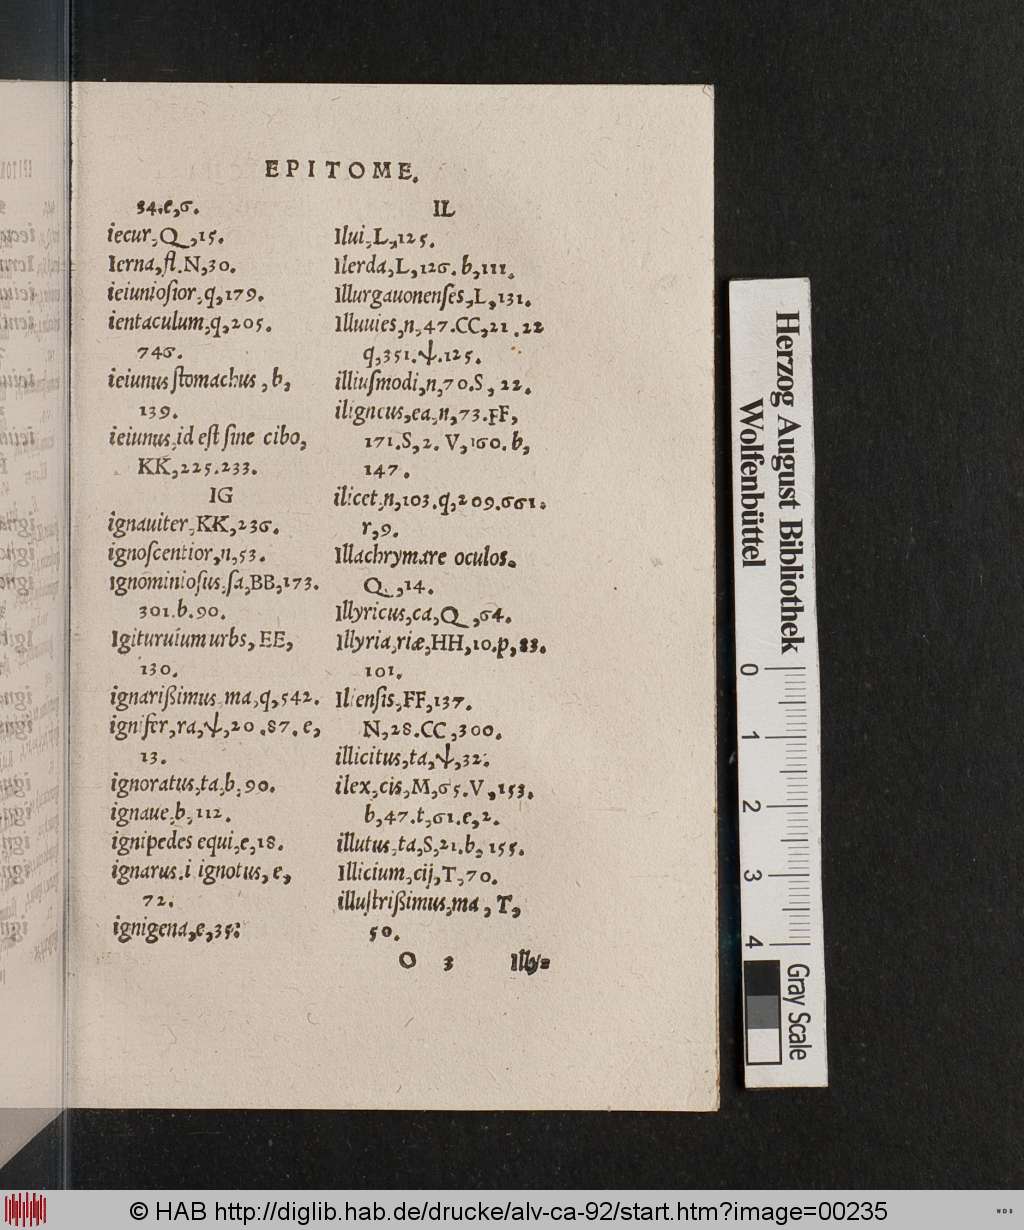 EPITOME.
34.e,6.
iecur,Q,15.
Ierna,fl.N,30.
ieiuniosior,q,179.
ientaculum,q,205.
746.
ieiunus stomachus, b,
139.
ieiunus,id est sine cibo,
KK,225.233.
IG
ignauiter,KK,236.
ignoscentior,n,53.
Ignominiosus,sa,BB,173.
301.b.90.
Igituruium urbs, EE,
130.
ignarißimus ma,q,542.
ignifer,ra,Ψ,20.87. e,
13.
ignoratus,ta,b,90.
ignaue,b,112.
ignipedes equi,e,18.
ignarus.i ignotus, e,
72.
ignigena,e,35:
IL
Ilui,L,125.
Ilerda,L,126.b,111.
Illurgauonenses,L,131.
Illuuies,n,47.CC,21.22
q,351.Ψ.125.
illiusmodi,n,70.S, 22.
iligneus,ea,n,73.FF,
171.S,2. V,160.b,
147.
ilicet,n,103.q,209.661.
r,9.
Illachrymare oculos.
Q,14.
Illyricus,ca,Q,64.
Illyria,riæ,HH,10.p,83.
101.
Iliensis,FF,137.
N,28.CC,300.
illicitus,ta,Ψ,32:
ilex,cis,M,65.V,153.
b,47.t,61.e,2.
illutus,ta,S,21.b, 155.
Illicium,cij,T,70.
illustrißimus,ma, T,
50.
O 3 Illy=
Herzog August Bibliothek
Wolfenbüttel
0 1 2 3 4
Gray Scale
© HAB http://diglib.hab.de/drucke/alv-ca-92/start.htm?image=00235